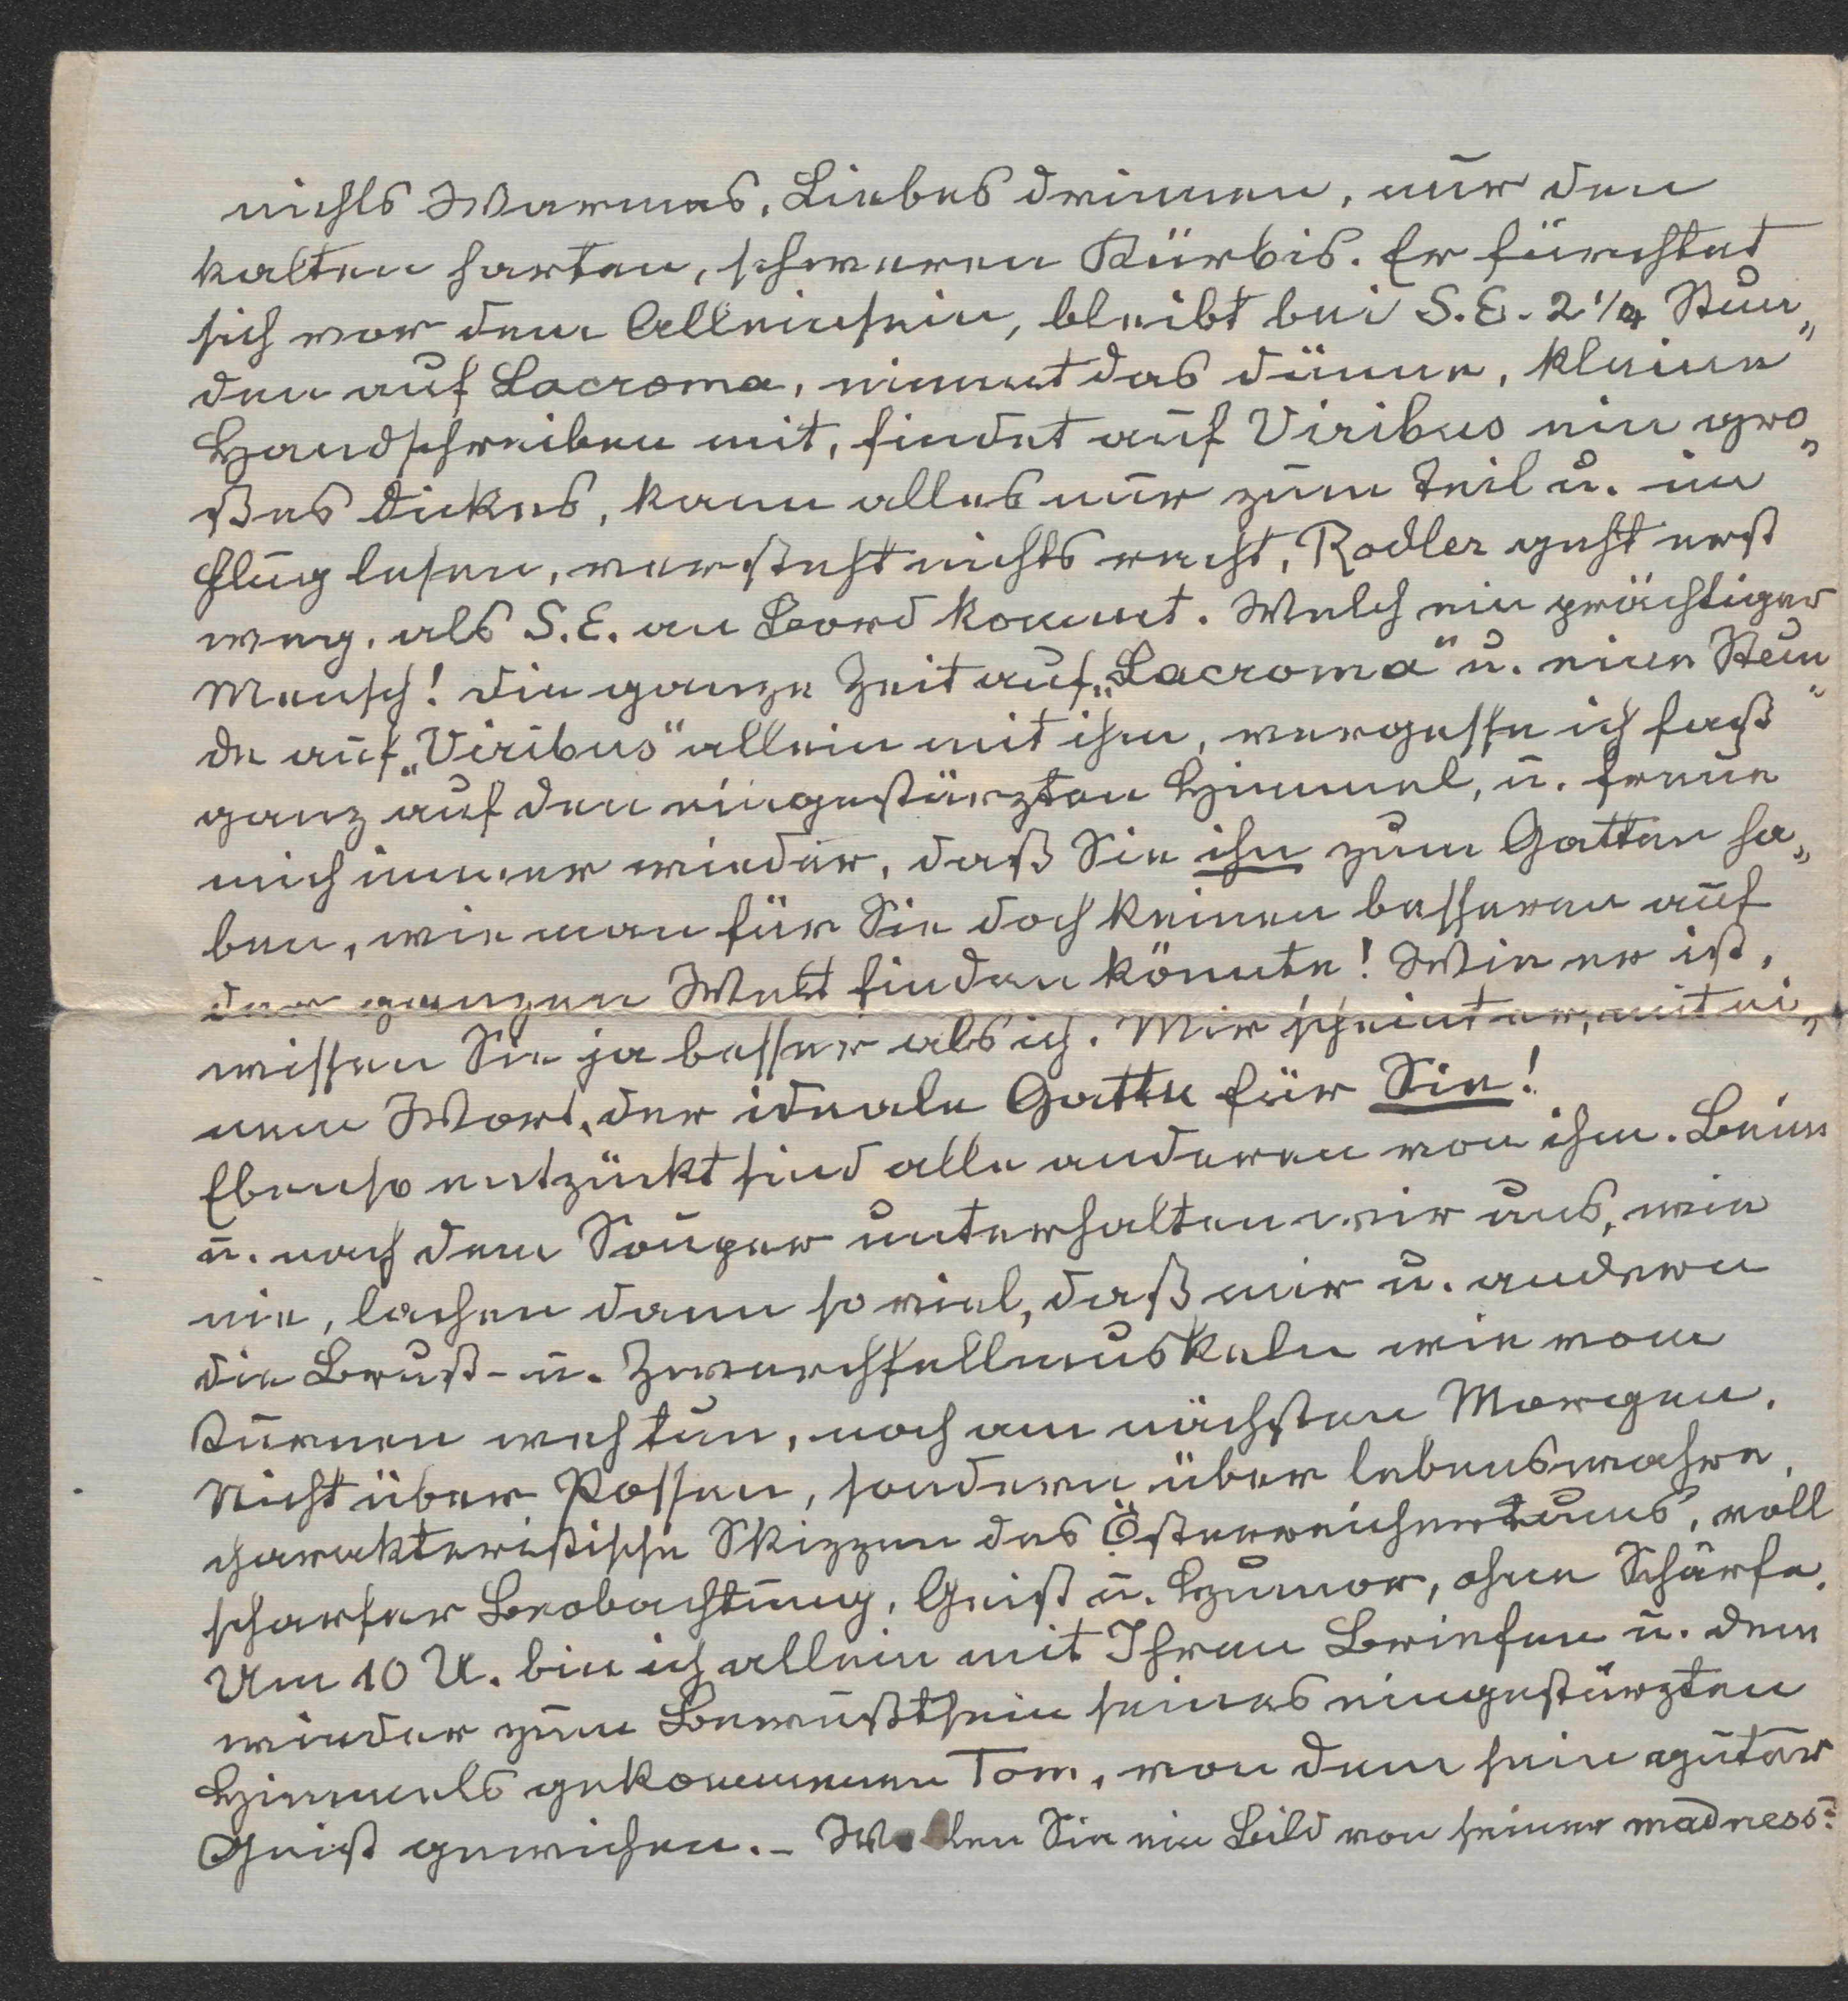 nichts Warmes, Liebes drinnen, nur den
kalten harten, schweren Kürbis. Er fürchtet
sich vor dem Alleinsein, bleibt bei S.E. 2 1/4 Stun„
den auf Lacroma, nimmt das dünne, kleine
Handschreiben mit, findet auf Viribus ein gro„
ßes dickes, kann alles nur zum Teil u. im
Flug lesen, versteht nichts recht, Rodler geht erst
weg, als S.E. an Bord kommt. Welch ein prächtiger
Mensch! Die ganze Zeit auf „Lacroma" u. eine Stun„
de auf „Viribus" allein mit ihm, vergesse ich fast
ganz auf den eingestürzten Himmel, u. freue
mich immer wieder, daß Sie ihn zum Gatten ha„
ben, wie man für Sie doch keinen besseren auf
der ganzen Welt finden könnte! Wie er ist,
wissen Sie ja besser als ich. Mir scheint er, mit ei„
nem Wort, der ideale Gatte für Sie!
Ebenso entzückt sind alle anderen von ihm. Beim
u. nach dem Souper unterhalten wir uns, wie
nie, lachen dann so viel, daß mir u. andern
die Brust- u. Zwerchfellmuskeln wie vom
Turnen weh tun, noch am nächsten Morgen.
Nicht über Possen, sondern über lebenswahre,
charakteristische Skizzen des Österreichertums, voll
scharfer Beobachtung, Geist u. Humor, ohne Schärfe.
Um 10 U. bin ich allein mit Ihren Briefen u. dem
wieder zum Bewußtsein seines eingestürzten
Himmels gekommenen Tom, von dem sein guter
Geist gewichen. – Wollen Sie ein Bild von seiner madness?